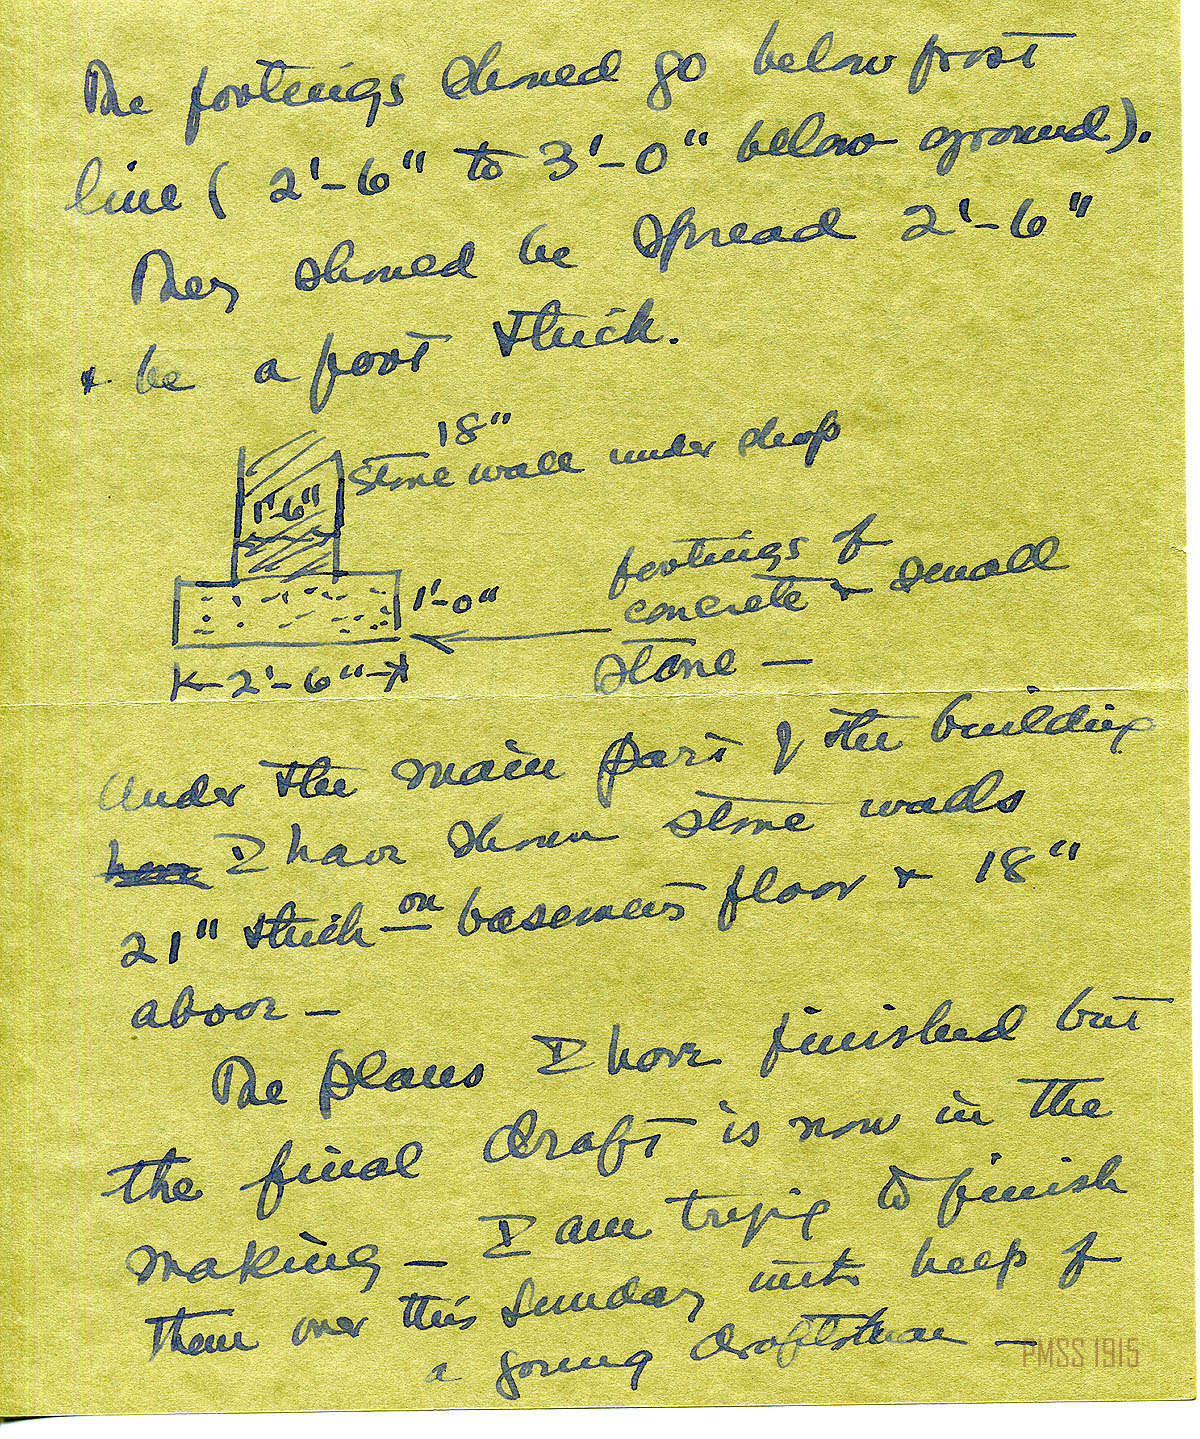 The footings should go below frost
line ( 2'-6" to 3'-0" below ground).
They should be spread 2'-6"
& be a foot thick.
18"
Stone wall under shop
1'-6"
footings of
concrete & small
stone —
1'-0"
2'-6"
Under the main part of the building
have I have shown stone walls
21" thick — on basement floor & 18"
above —
The plans I have finished but
the final draft is now in the
making — I am trying to finish
them over this Sunday with help of
a young draftsman —
PMSS 1915